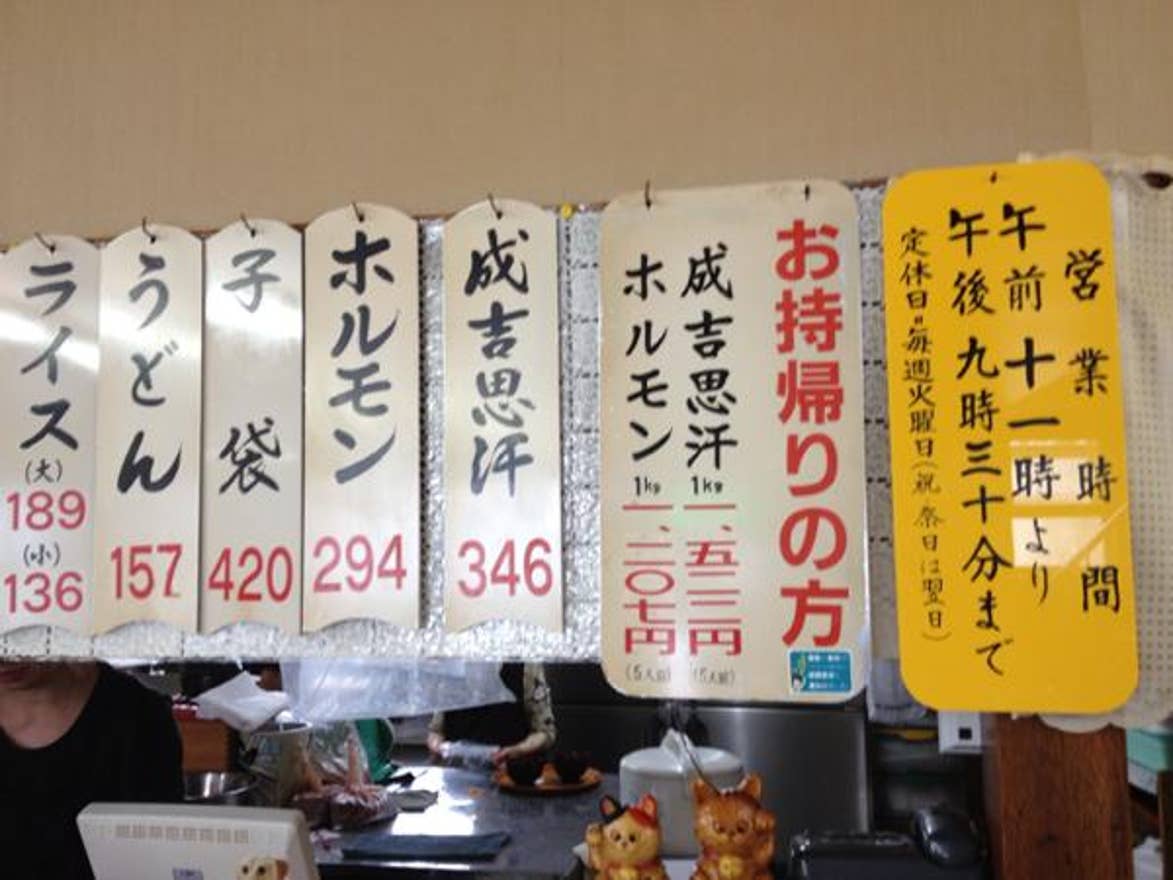 営業時間
午前十一時より
午後九時三十分まで
定休日=毎週火曜日(祝祭日は翌日)
お持帰りの方
成吉思汗 1kg 一、五三三円 (5人前)
ホルモン 1kg 一、二〇七円 (5人前)
成吉思汗 346
ホルモン 294
子袋 420
うどん 157
ライス
(大)
189
(小)
136